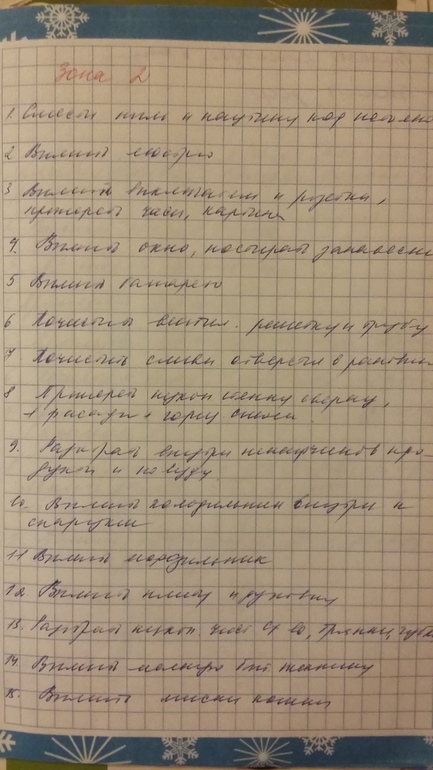 Зона 2
1. Смести пыль и паутину под потолко
2 Вымыть люстру
3 Вымыть выключатели и розетки,
протереть часы, картины
4. Вымыть окно, постирать занавески
5 Вымыть батарею
6 Почистить вентил. решетку и трубу
7 Почистить сливн отверстия в раковин
8 Протереть кухон стенку сверху,
"фасады" снизу
9. Разобрать внутри шкафчиков про-
дукты и посуду
10. Вымыть холодильник внутри и
снаружи
11 Вымыть морозильник
12. Вымыть плиту и духовку
13. Разобрать кухон. чист. ср-во, тряпки, губк
14. Вымыть мелкую быт технику
15. Вымыть миски кошки